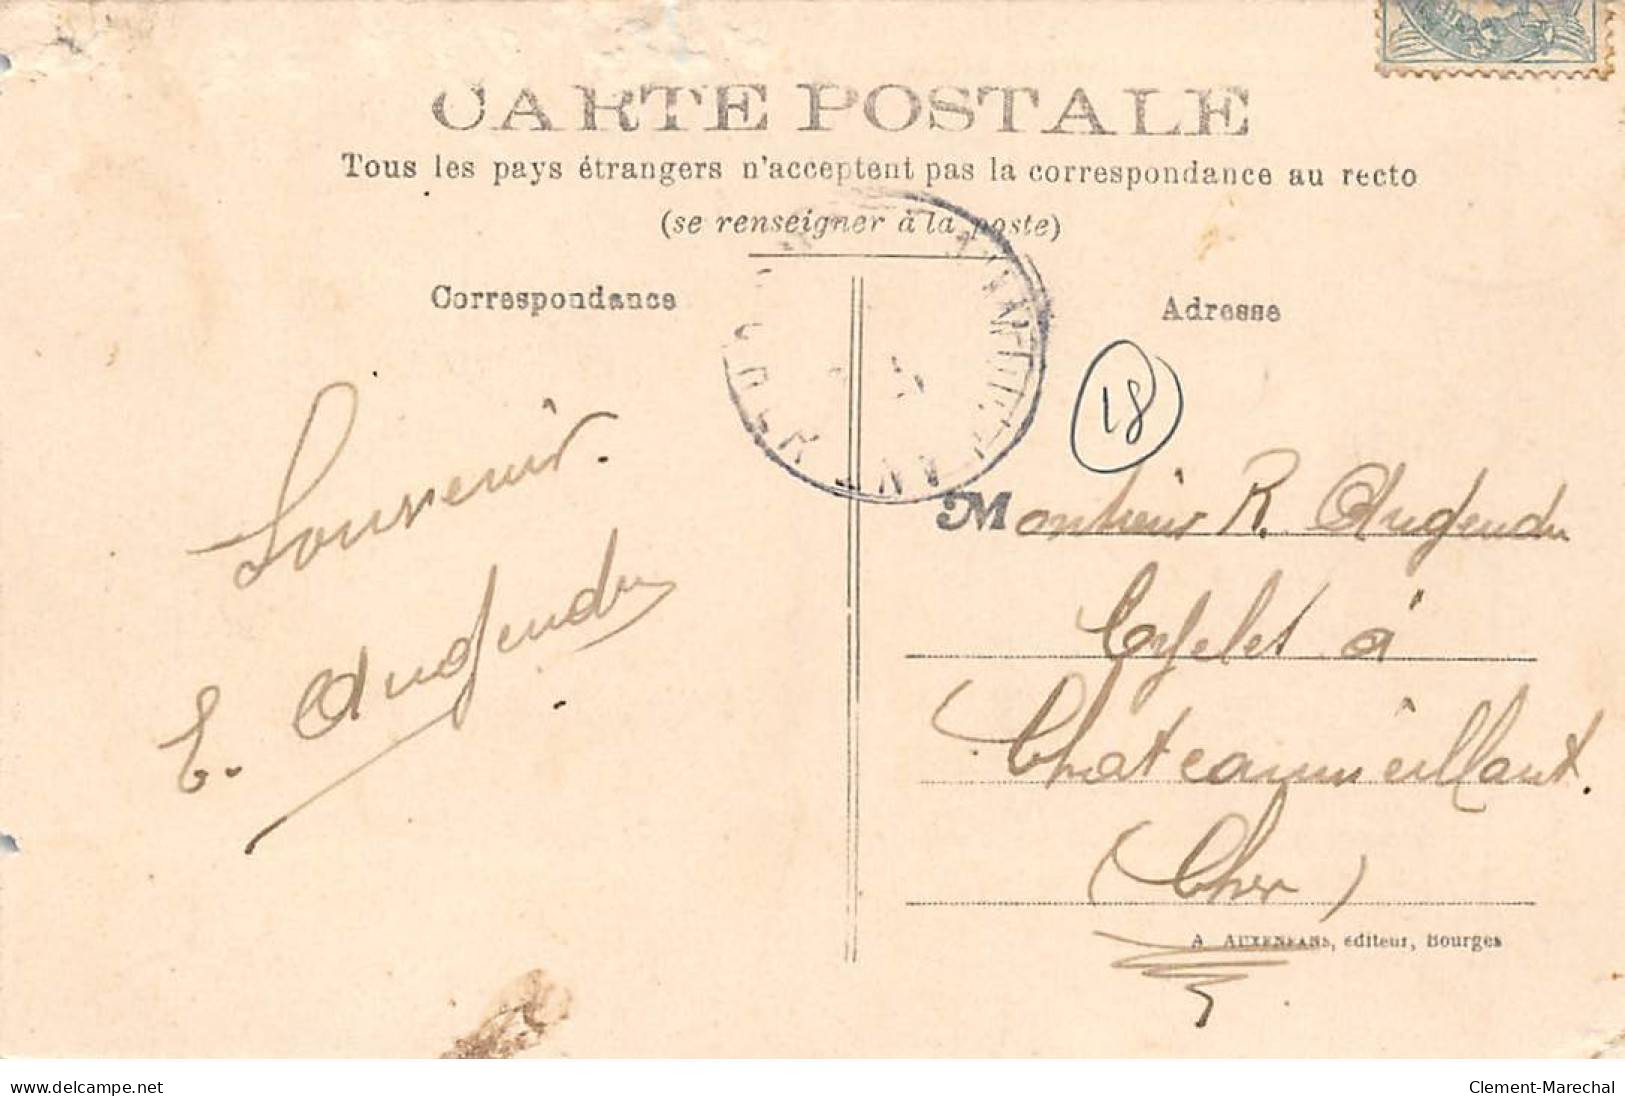 CARTE POSTALE
Tous les pays étrangers n'acceptent pas la correspondance au recto
(se renseigner à la poste)
Correspondance
Adresse
18
Souvenir.
E. Augendre
Monsieur R. Augendre
à
Chateaumeillant.
(Cher)
A AUXENFANS, éditeur, Bourges
www.delcampe.net
Clement-Marechal